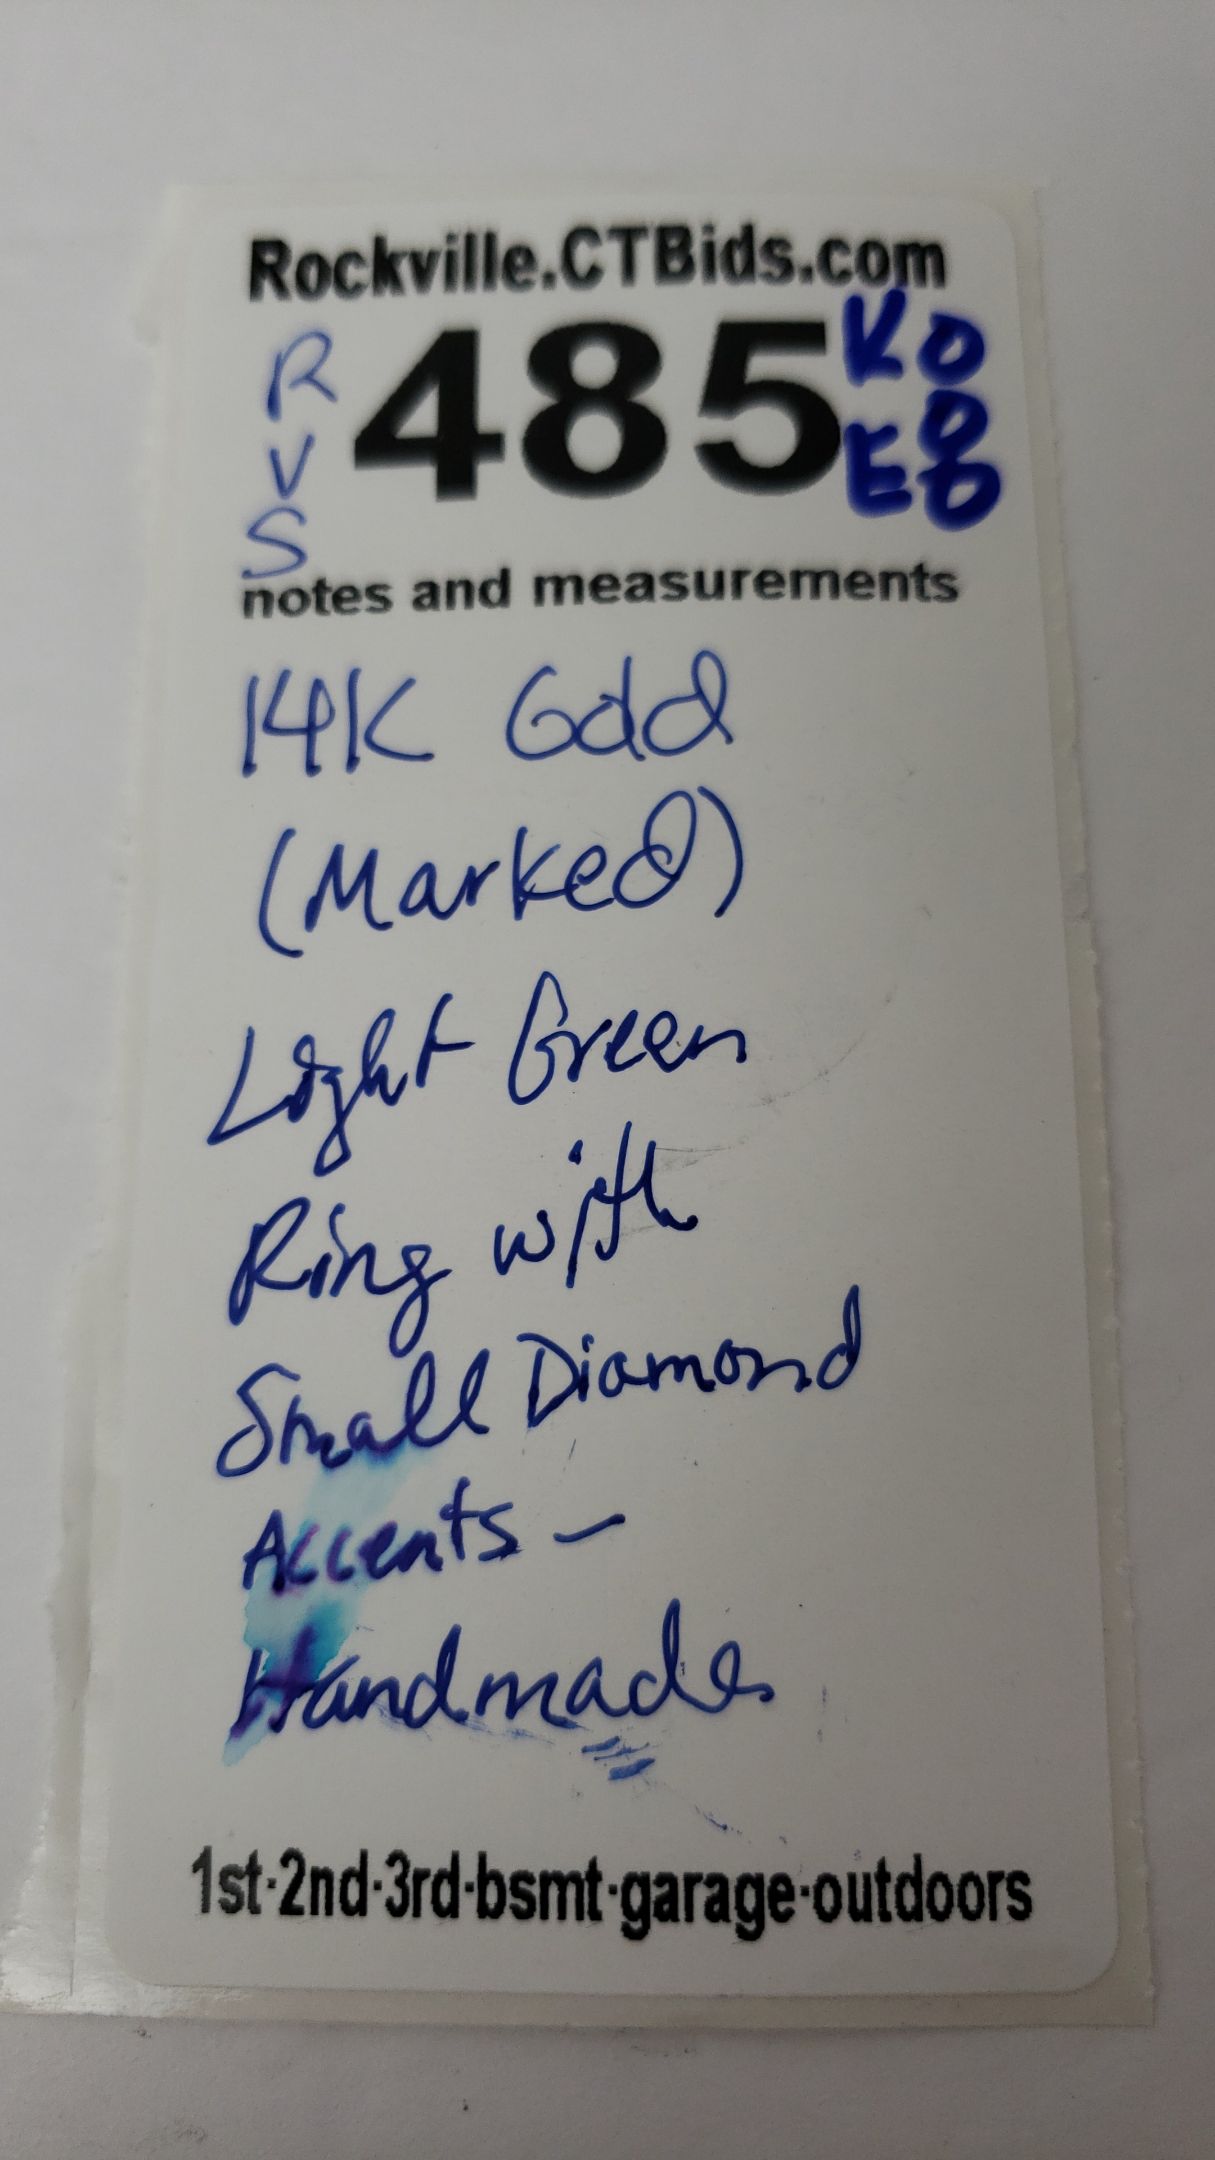 Rockville.CTBids.com
R 485 KO
V EO
S O
notes and measurements
14K Gold
(Marked)
Light Green
Ring with
Small Diamond
Accents -
Handmade
1st·2nd·3rd·bsmt·garage·outdoors